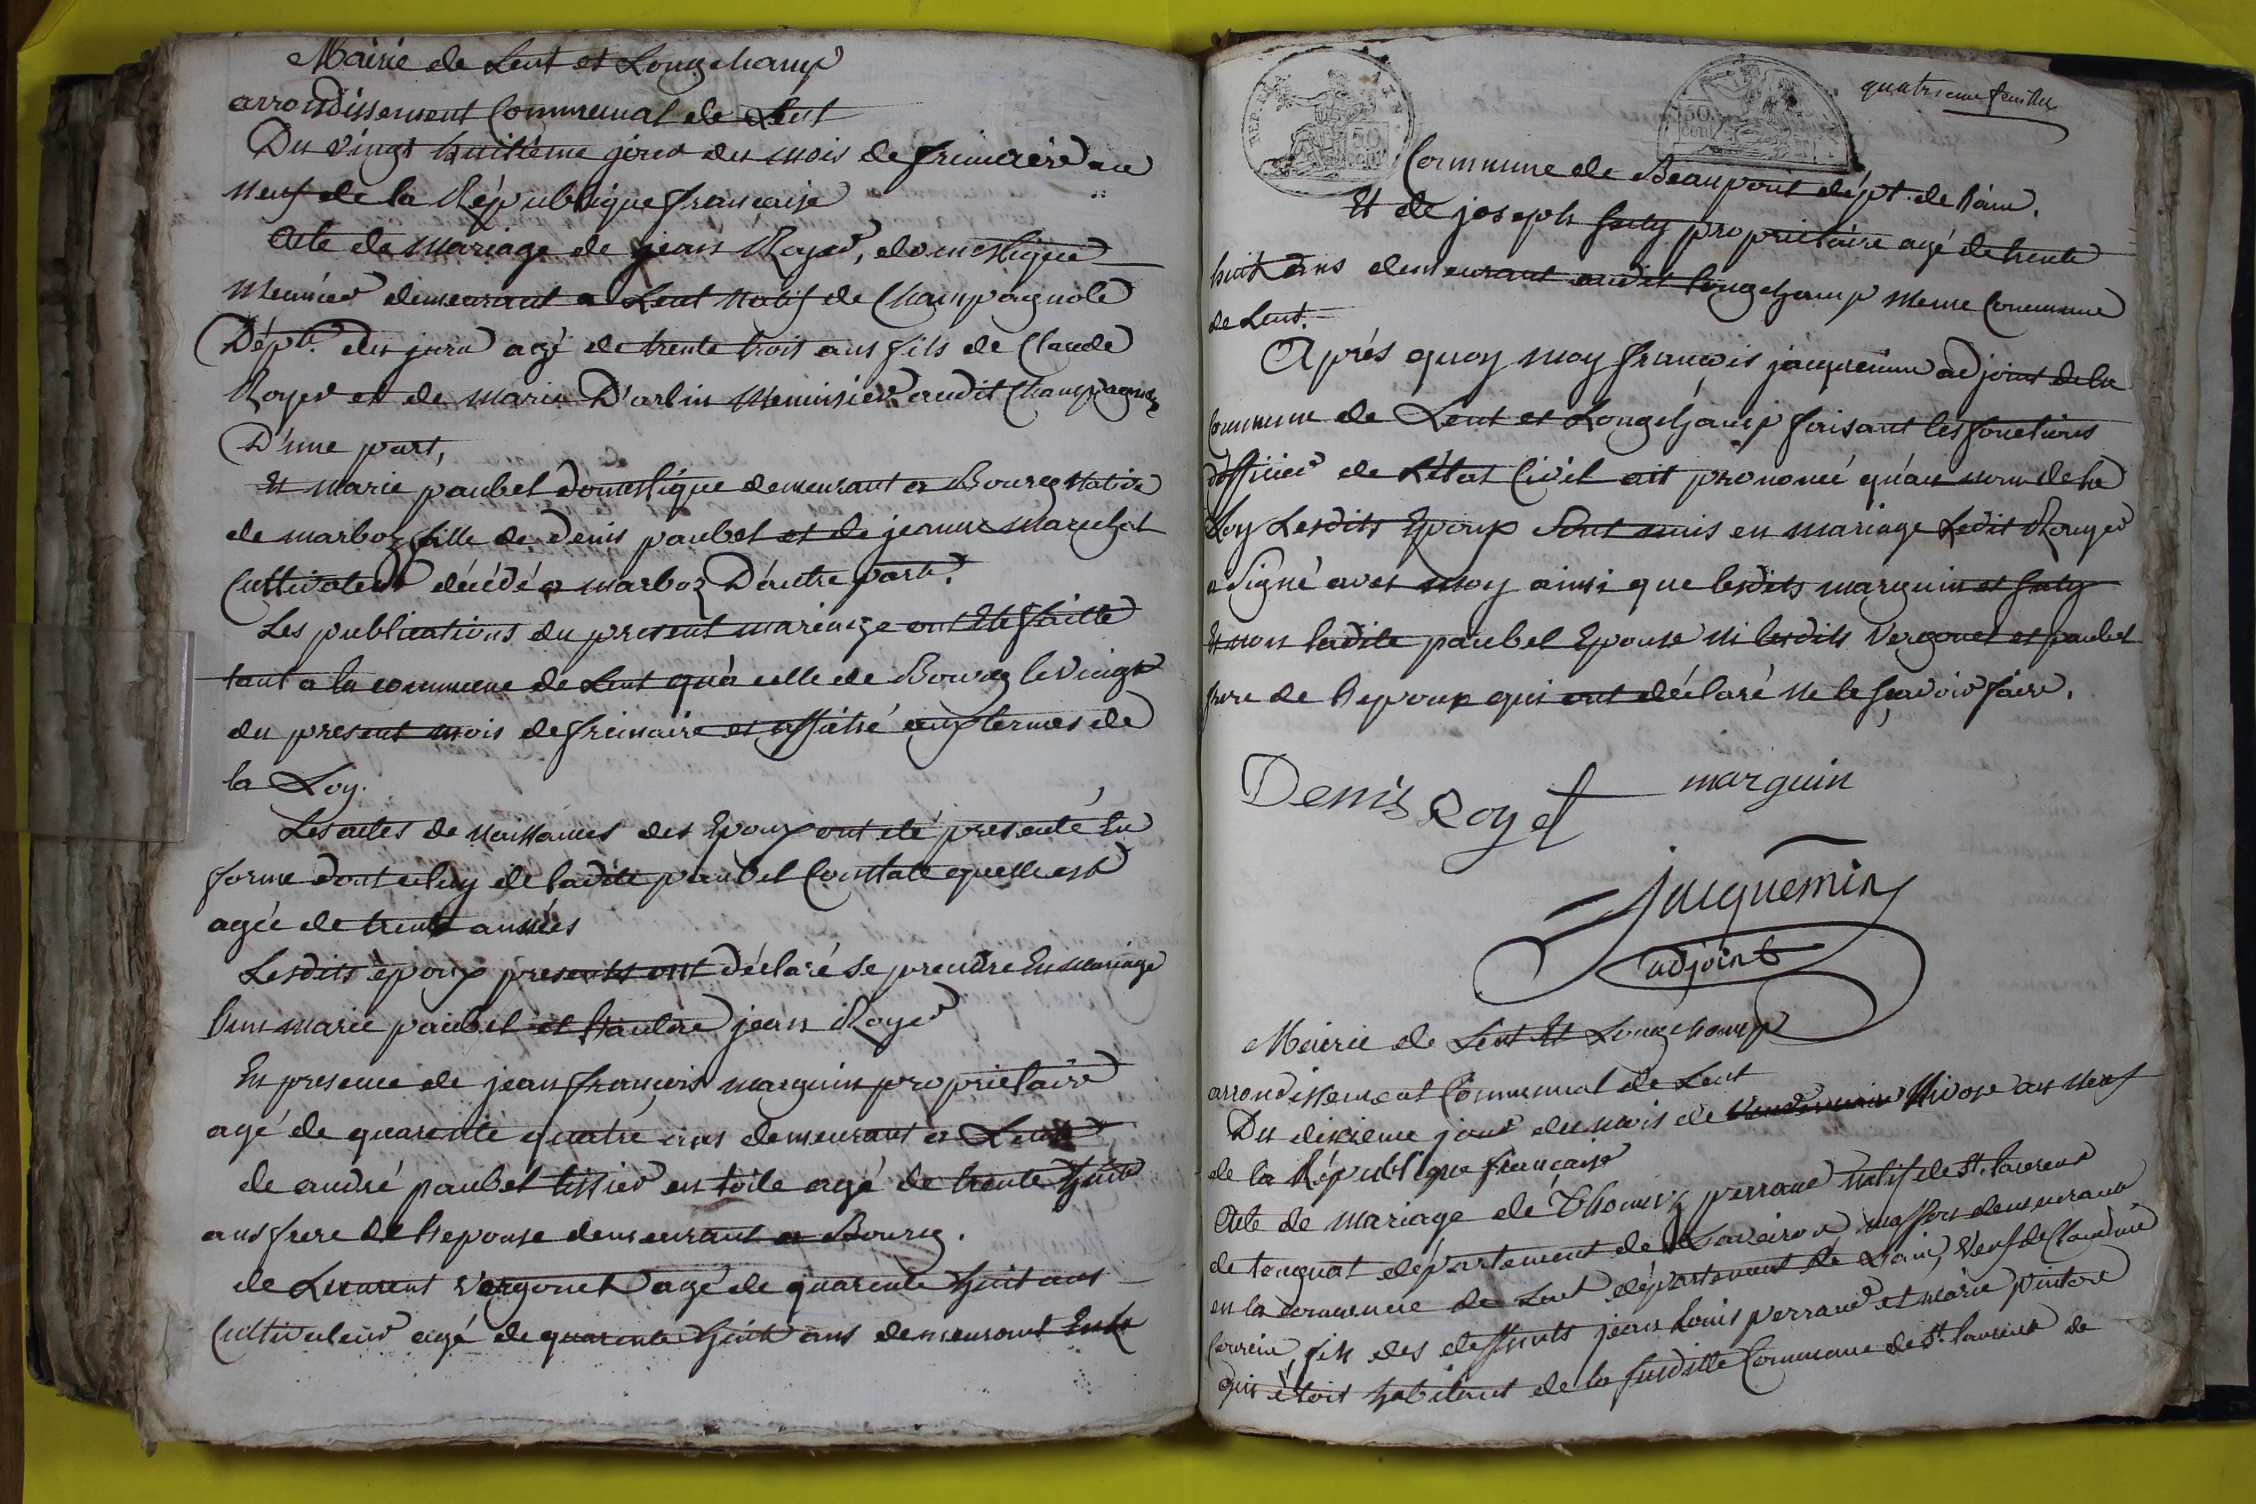 Mairie de Lent et Longchamp
arrondissement Communal de Lent
Du vingt huitieme jour du mois de frimaire an
neuf de la République française
Acte de mariage de jean Royer, domestique
Meunier demeurant a Lent natif de Champagnole
Dépt. du jura agé de trente trois ans fils de Claude
Royer et de marie D'arbin Menuisier audit Champagnole
D'une part,
Et marie paubel domestique demeurant a Bourg Native
de marboz fille de Denis paubel et de jeanne marechal
Cultivateur décédé a marboz D'autre part.
Les publications du present mariage ont Eté faitte
tant a la commune de Lent qu'a celle de Bourg le vingt
du present mois de frimaire et affiché aux termes de
la Loy.
Les actes de naissances des Epoux ont eté presenté En
forme dont celuy de ladite paubel Constate quelle est
agée de trente années
Lesdits époux presents ont déclaré se prendre En mariage
l'un marie paubel et L'autre jean Royer
En presence de jean françois marguin propriétaire
agé de quarente quatre ans demeurant a Lent
de andré paubel tissier en toile agé de trente huit
ans frere de l'epouse demeurant a Bourg.
de Laurent Vergonet agé de quarente huit ans
Cultivateur agé de quarente huit ans demeurant En la
quatrieme feuillet
REP. FRA.
50 cent
50. cent
Commune de Beaupont dépt. de l'ain.
Et de joseph propriétaire agé de trente
huit ans demeurant audit Longchamp meme Commune
de Lent.
Aprés quoy moy françois jacquemin adjoint de la
Commune de Lent et Longchamp faisant les fonctions
d'officier de L'état Civil ait prononcé qu'au nom de la
Loy Lesdits Epoux Sont unis en mariage Ledit Royer
a Signé avec moy ainsi que lesdits marguin et
Et non ladite paubel Epouse ni lesdits Vergonet et paubel
frere de l'epoux qui ont déclaré ne le sçavoir faire.
Denis Royet marguin
Jacquemin
adjoint
Mairie de Lent Et Longchamp
arrondissement Communal de Lent
Du dixieme jour du mois de Nivose an neuf
de la République française
Acte de mariage de Thomas perraud natif de St. laurens
de département de Laveiron masson demeurant
en la commune de Lent département de L'ain, Veuf de Claudine
fils des deffunts jean Louis perraud et marie
qui étoit habitant de la susditte Commune de St. laurens de